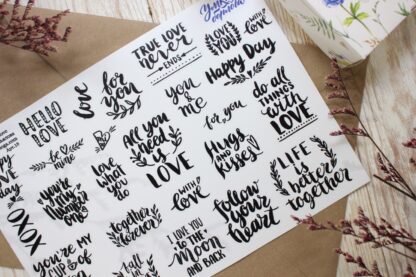 HELLO
LOVE
love
for you
TRUE LOVE
never
ENDS
I
LOVE
YOU
with
love
Happy Day
you
&
me
be
mine
All you
need
is
LOVE
for you
do all
THINGS
with
LOVE
you're
my
one
Love
what
you
do
Hugs
and
kisses
LIFE
is
better
together
XOXO
together
forever
with
love
follow
your
heart
YOU'RE MY
CUP of
I LOVE YOU
TO THE
MOON
AND BACK